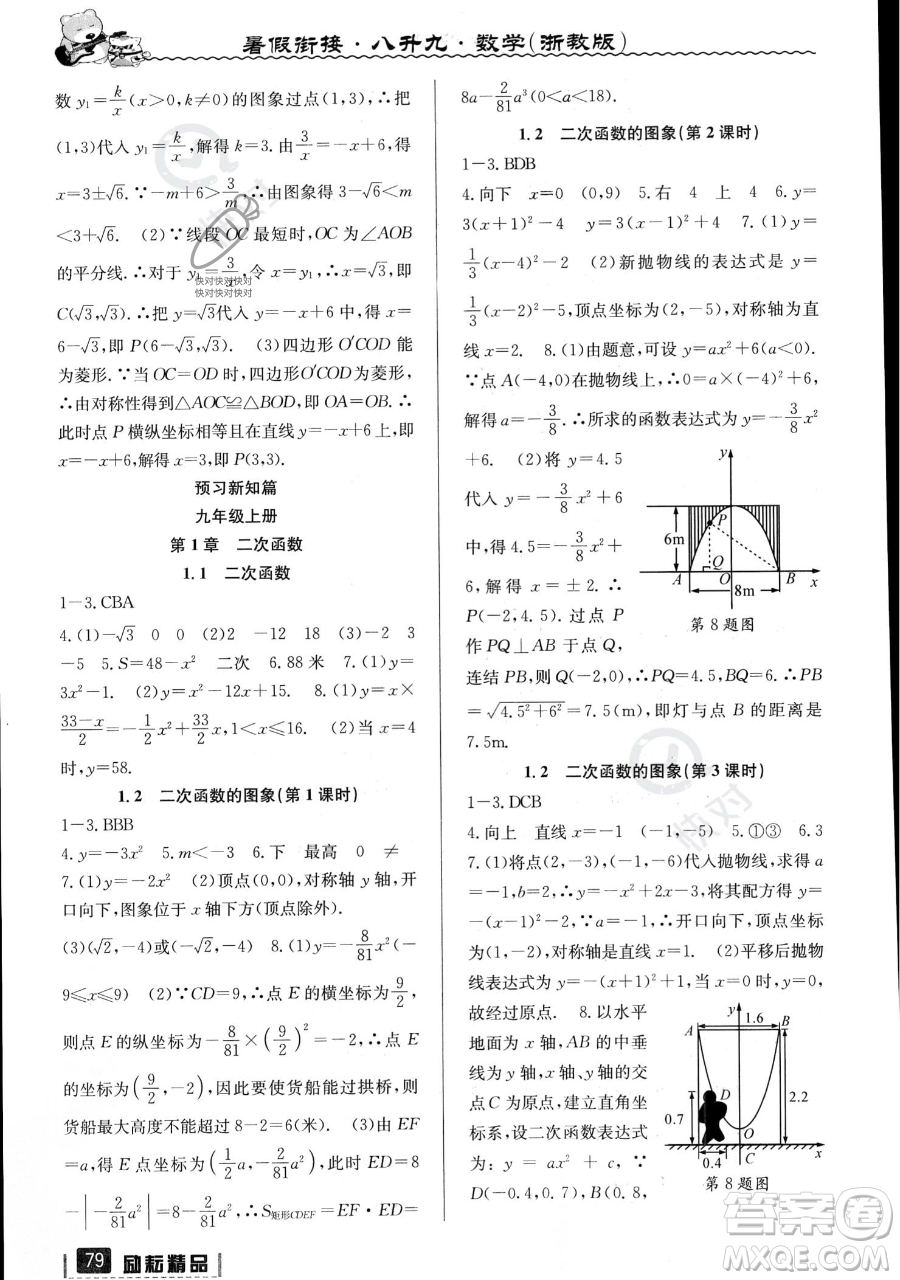 暑假衔接·八升九·数学(浙教版)
数 y₁=k/x(x>0,k≠0)的图象过点(1,3),∴把
(1,3)代入 y₁=k/x,解得 k=3. 由 3/x=-x+6,得
x=3±√6. ∵-m+6>3/m,∴由图象得 3-√6<m
<3+√6. (2)∵线段 OC 最短时,OC 为∠AOB
的平分线.∴对于 y₁=3/x,令 x=√3,即
快对快对快对
快对快对快对
C(√3,√3).∴把 y=√3代入 y=-x+6 中,得 x=
6-√3,即 P(6-√3,√3). (3)四边形 O′COD 能
为菱形.∵当 OC=OD 时,四边形 O′COD 为菱形.
∴由对称性得到△AOC≌△BOD,即 OA=OB.∴
此时点 P 横纵坐标相等且在直线 y=-x+6 上,即
x=-x+6,解得 x=3,即 P(3,3).
预习新知篇
九年级上册
第 1 章 二次函数
1.1 二次函数
1-3.CBA
4.(1)-√3 0 0 (2)2 -12 18 (3)-2 3
-5 5.S=48-x² 二次 6.88 米 7.(1)y=
3x²-1. (2)y=x²-12x+15. 8.(1)y=x×
33-x/2=-1/2x²+33/2x,0<x≤16. (2)当 x=4
时,y=58.
1.2 二次函数的图象(第 1 课时)
1-3.BBB
4.y=-3x² 5.m<-1 6.下 最高 0 ≠
7.(1)y=-2x² (2)顶点(0,0),对称轴 y 轴,开
口向下,图象位于 x 轴下方(顶点除外).
(3)(√2,-4)或(-√2,-4) 8.(1)y=-8/81x²(-
9≤x≤9) (2)∵CD=9,∴点 E 的横坐标为9/2,
则点 E 的纵坐标为-8/81×(9/2)²=-2,∴点 E
的坐标为(9/2,-2),因此要使货船能过拱桥,则
货船最大高度不能超过 8-2=6(米). (3)由 EF
=a,得点 E 坐标为(1/2a,-2/81a²),此时 ED=8
-|-2/81a²|=8-2/81a²,∴S矩形CDEF=EF·ED=
8a-2/81a³(0<a<18).
1.2 二次函数的图象(第 2 课时)
1-3.BDB
4.向下 x=0 (0,9) 5.右 4 上 4 6.y=
3(x+1)²-4 y=3(x-1)²+4 7.(1)y=
1/3(x-4)²-2 (2)新抛物线的表达式是 y=
1/3(x-2)²-5,顶点坐标为(2,-5),对称轴为直
线 x=2. 8.(1)由题意,可设 y=ax²+6(a<0).
∵点 A(-4,0)在抛物线上,∴0=a×(-4)²+6,
解得 a=-3/8.∴所求的函数表达式为 y=-3/8x²
+6. (2)将 y=4.5
代入 y=-3/8x²+6
中,得 4.5=-3/8x²+
6,解得 x=±2.∴
P(-2,4.5).过点 P
作 PQ⊥AB 于点 Q,
连结 PB,则 Q(-2,0),∴PQ=4.5,BQ=6.∴PB
=√4.5²+6²=7.5(m),即灯与点 B 的距离是
7.5m.
y
P
6m
Q
A O B x
8m
第 8 题图
1.2 二次函数的图象(第 3 课时)
1-3.DCB
4.向上 直线 x=-1 (-1,-5) 5.①③ 6.3
7.(1)将点(2,-3),(-1,-6)代入抛物线,求得 a
=-1,k=-2,∴y=-x²+2x-3,将其配方得 y=
-(x-1)²-2,∵a=-1,∴开口向下,顶点坐标
为(1,-2),对称轴是直线 x=1. (2)平移后抛物
线表达式为 y=-(x+1)²+1,当 x=0 时,y=0,
故经过原点. 8.以水平
地面为 x 轴,AB 的中垂
线为 y 轴,与地面的交
点 C 为原点,建立直角坐
标系,设二次函数表达式
为:y=ax²+c,∵
D(-0.4,0.7),B(0.8,
y
A 1.6 B
D
2.2
0.7
O
0.4 C x
第 8 题图
79 励耘精品
快对
答案圈
MXQE.COM